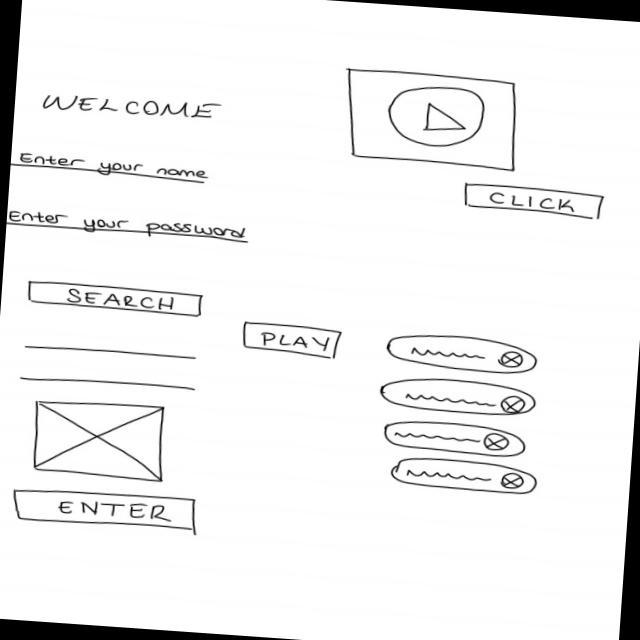 WELCOME
Enter your name
CLICK
Enter your password
SEARCH
PLAY
ENTER